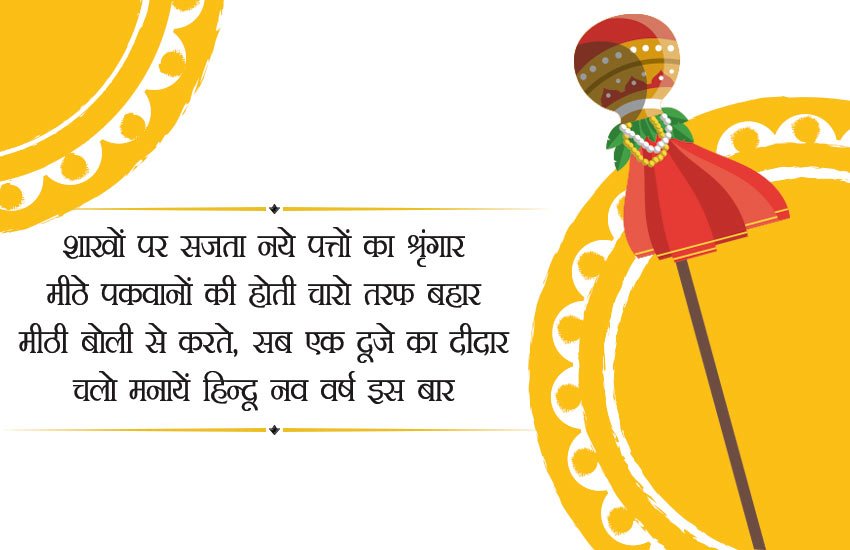 शाखों पर सजता नये पत्तों का श्रृंगार
मीठे पकवानों की होती चारो तरफ बहार
मीठी बोली से करते, सब एक दूजे का दीदार
चलो मनायें हिन्दू नव वर्ष इस बार